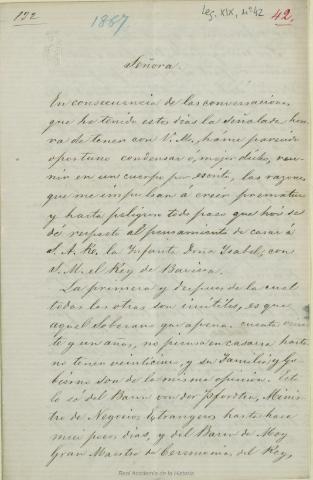 132
1887
Leg. XIX, nº 42
42.
Señora.
En consecuencia de las conversaciones
que he tenido estos dias la señalada hon-
ra de tener con V. M., háme parecido
oportuno condensar ó, mejor dicho, reu-
nir en un cuerpo por escrito, las razones
que me impulsan á creer prematuro
y hasta peligroso todo paso que hoy se
dé respecto al pensamiento de casar á
S. A. R. la Infanta Doña Isabel, con
S. M. el Rey de Baviera.
La primera y despues de la cual
todas las otras son inutiles, es que
aquel Soberano que apenas cuenta vein-
te y un años, no piensa en casarse hasta
no tener veinticinco, y su Familia y Go-
bierno son de la misma opinion. Esto
lo sé del Baron von der Pfordten, Minis-
tro de Negocios Extrangeros hasta hace
muy pocos dias, y del Baron de Moy
Gran Maestro de Ceremonias del Rey,
Real Academia de la Historia